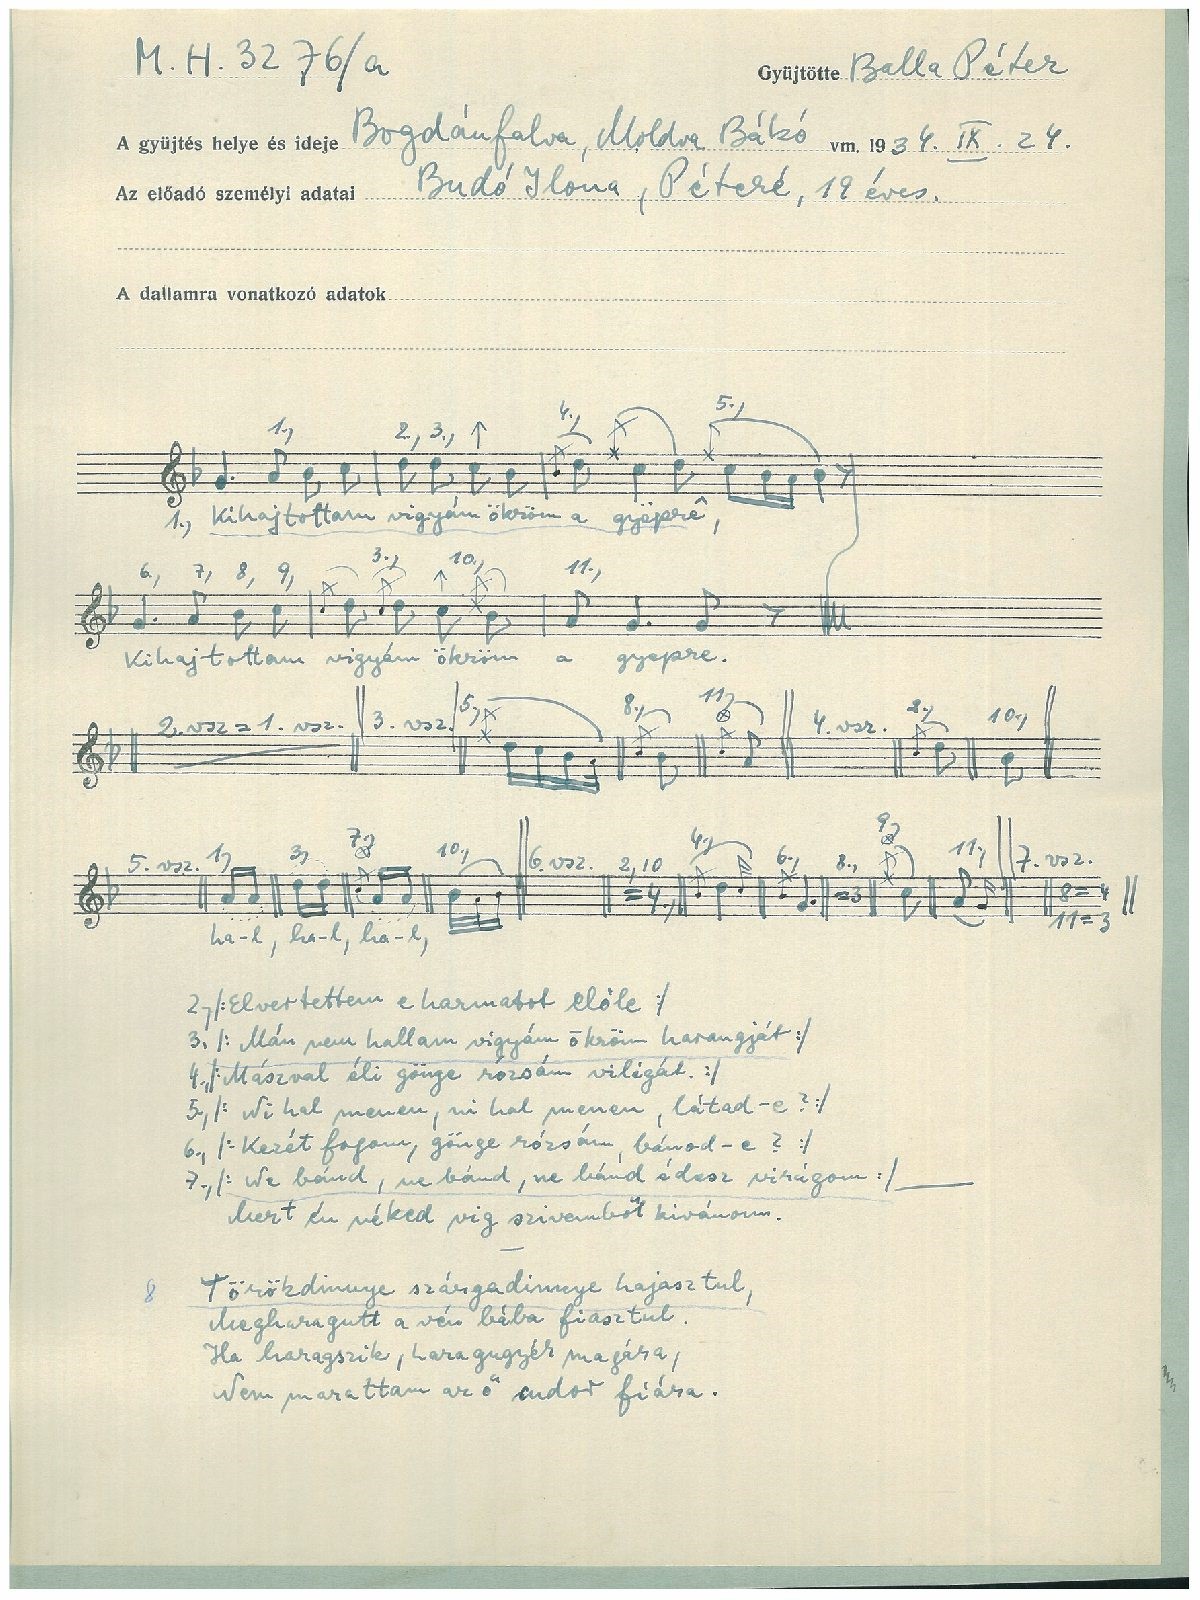 M. H. 3276/a
Gyüjtötte Balla Péter
A gyüjtés helye és ideje Bogdánfalva, Moldva Bákó vm. 1934. IX. 24.
Az előadó személyi adatai Budó Ilona, Péteré, 19 éves.
A dallamra vonatkozó adatok
1., 2., 3., 4., 5.,
1., Kihajtottam vigyám ökröm a gyëpre,
6., 7., 8., 9., 3., 10., 11.,
Kihajtottam vigyám ökröm a gyepre.
2. vsz = 1. vsz. 3. vsz. 5., 8., 11., 4. vsz. 2., 10.,
5. vsz. 1., 3., 7., 10., 6. vsz. 2,10 =4., 4., 6., 8., =3 9., 11., 7. vsz. 8=4
11=3
ha-l, ha-l, ha-l,
2., /: Elvertettem e harmatot elöle :/
3., /: Mán nem hallam vigyám ökröm harangját :/
4., /: Mászval éli gönge rózsám világát. :/
5., /: Ni hal menen, ni hal menen, látad-e? :/
6., /: Kezét fogom, gönge rózsám, bánod-e? :/
7., /: Ne bánd, ne bánd, ne bánd édesz virágom :/
Mert én néked vig szivemből kivánom.
8 Törökdinnye szárgadinnye hajasztul,
Megharagutt a vén bába fiasztul.
Ha haragszik, haragugyér magára,
Nem marattam az ő cudor fiára.